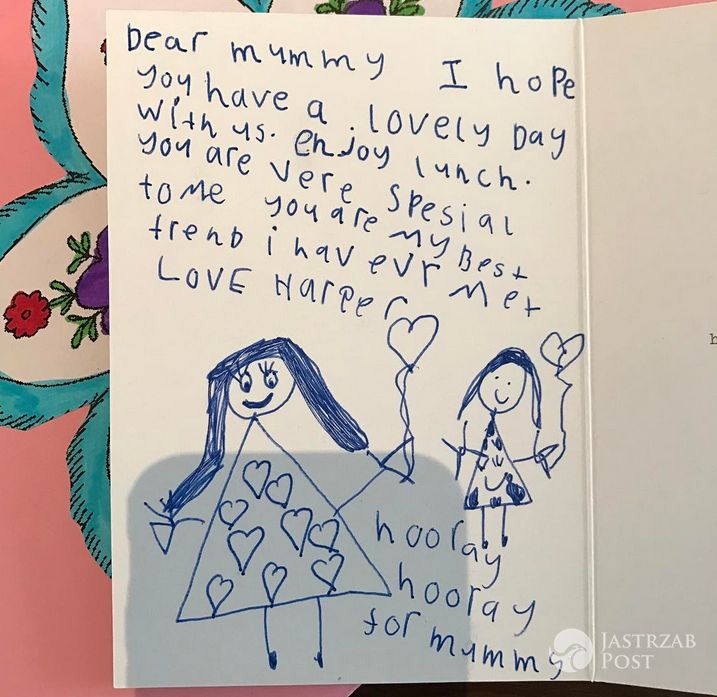 Dear mummy I hope
you have a lovely Day
with us. enjoy lunch.
you are vere spesial
to me you are my Best
frend i hav evr met
LOVE Harper
hooray
hooray
for mummy
JASTRZAB
POST